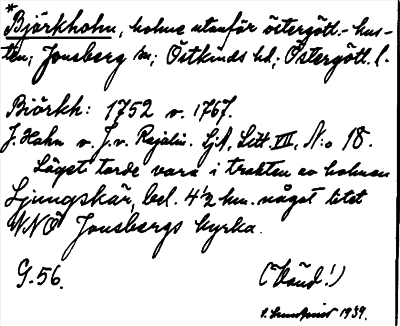 *
Björkholm, holme utanför östergöt.-kus-
ten; Jonsberg sn; Östkinds hd; Östergötl. l.
Björkh: 1752 o. 1767.
J. Hahn o. J. v. Rajalin. SjA, Litt VII, N:o 18.
Läget torde vara i trakten av holmen
Ljungskär, bel. 4½ km. något litet
NNÖ Jonsbergs kyrka.
G. 56.
1939.